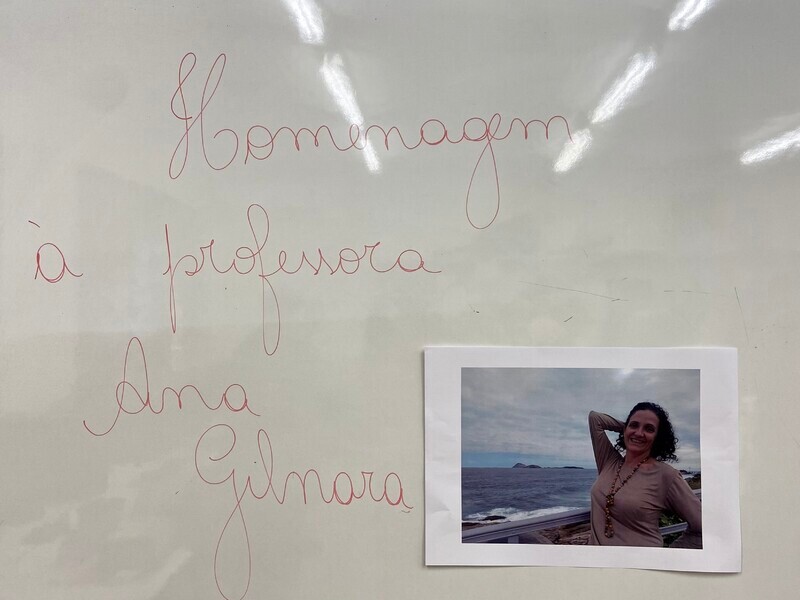 Homenagem
à professora
Ana
Gilnara